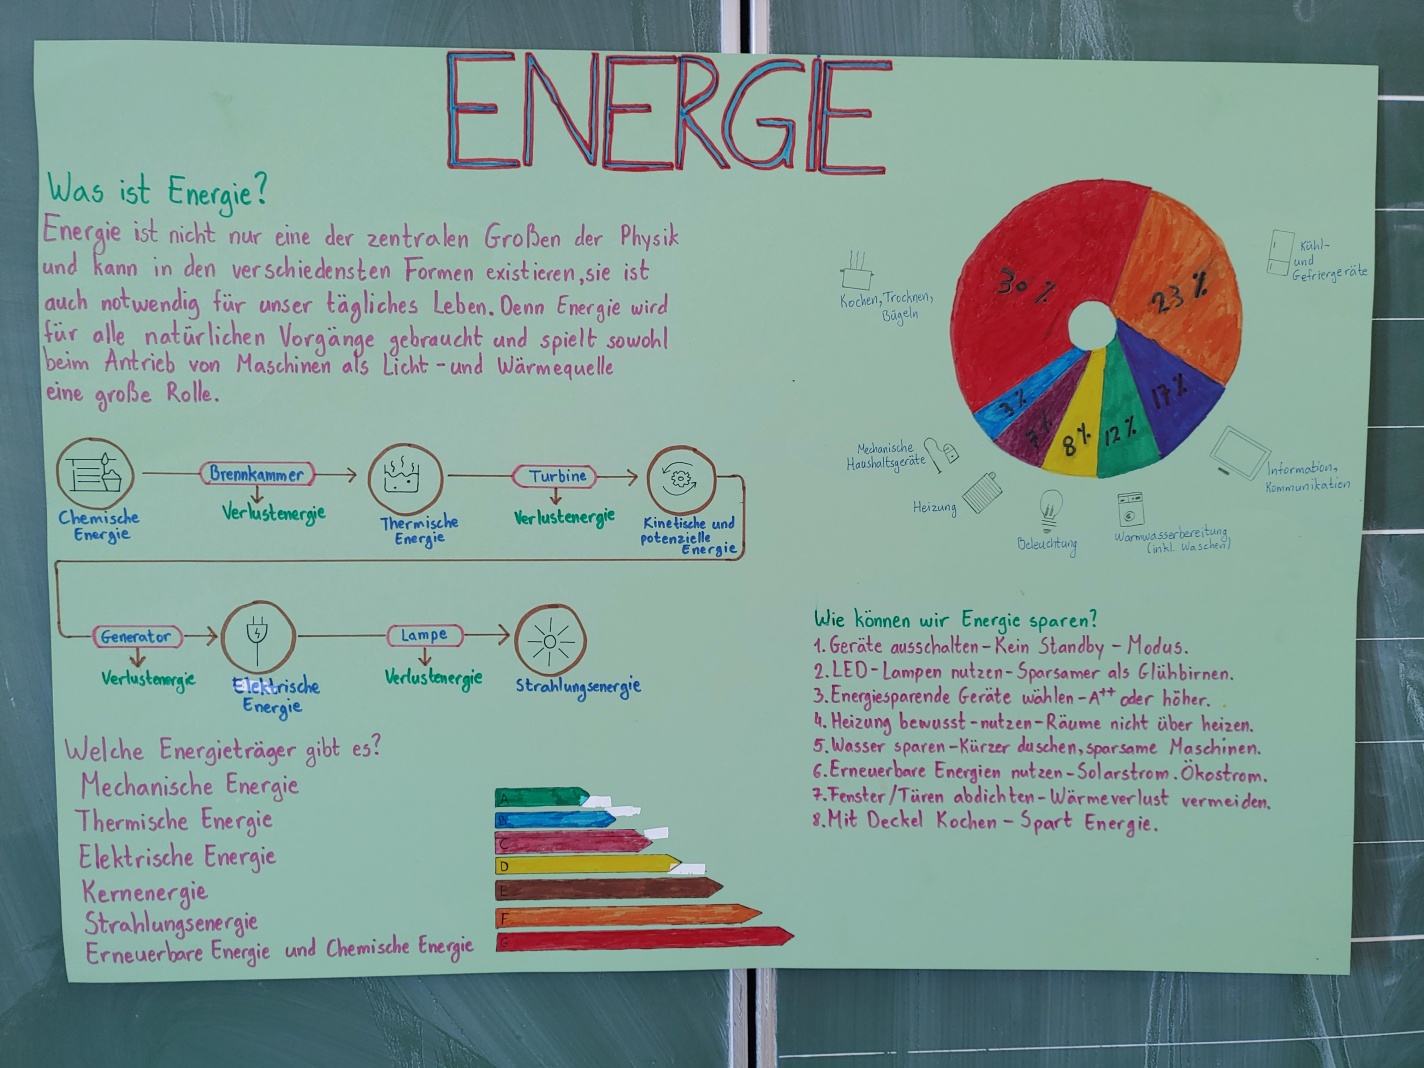 ENERGIE
Was ist Energie?
Energie ist nicht nur eine der zentralen Großen der Physik
und kann in den verschiedensten Formen existieren, sie ist
auch notwendig für unser tägliches Leben. Denn Energie wird
für alle natürlichen Vorgänge gebraucht und spielt sowohl
beim Antrieb von Maschinen als Licht - und Wärmequelle
eine große Rolle.
Brennkammer
Turbine
Verlustenergie
Verlustenergie
Chemische
Energie
Thermische
Energie
Kinetische und
potenzielle
Energie
Generator
Lampe
Verlustenergie
Verlustenergie
Elektrische
Energie
Strahlungsenergie
Welche Energieträger gibt es?
Mechanische Energie
Thermische Energie
Elektrische Energie
Kernenergie
Strahlungsenergie
Erneuerbare Energie und Chemische Energie
A
B
C
D
E
F
G
30 %
23 %
17 %
12 %
8 %
7 %
3 %
Kühl-
und
Gefriergeräte
Kochen, Trocknen,
Bügeln
Mechanische
Haushaltsgeräte
Heizung
Beleuchtung
Warmwasserbereitung
(inkl. Waschen)
Information,
Kommunikation
Wie können wir Energie sparen?
1. Geräte ausschalten - Kein Standby - Modus.
2. LED - Lampen nutzen - Sparsamer als Glühbirnen.
3. Energiesparende Geräte wählen - A++ oder höher.
4. Heizung bewusst - nutzen - Räume nicht über heizen.
5. Wasser sparen - Kürzer duschen, sparsame Maschinen.
6. Erneuerbare Energien nutzen - Solarstrom. Ökostrom.
7. Fenster / Türen abdichten - Wärmeverlust vermeiden.
8. Mit Deckel Kochen - Spart Energie.